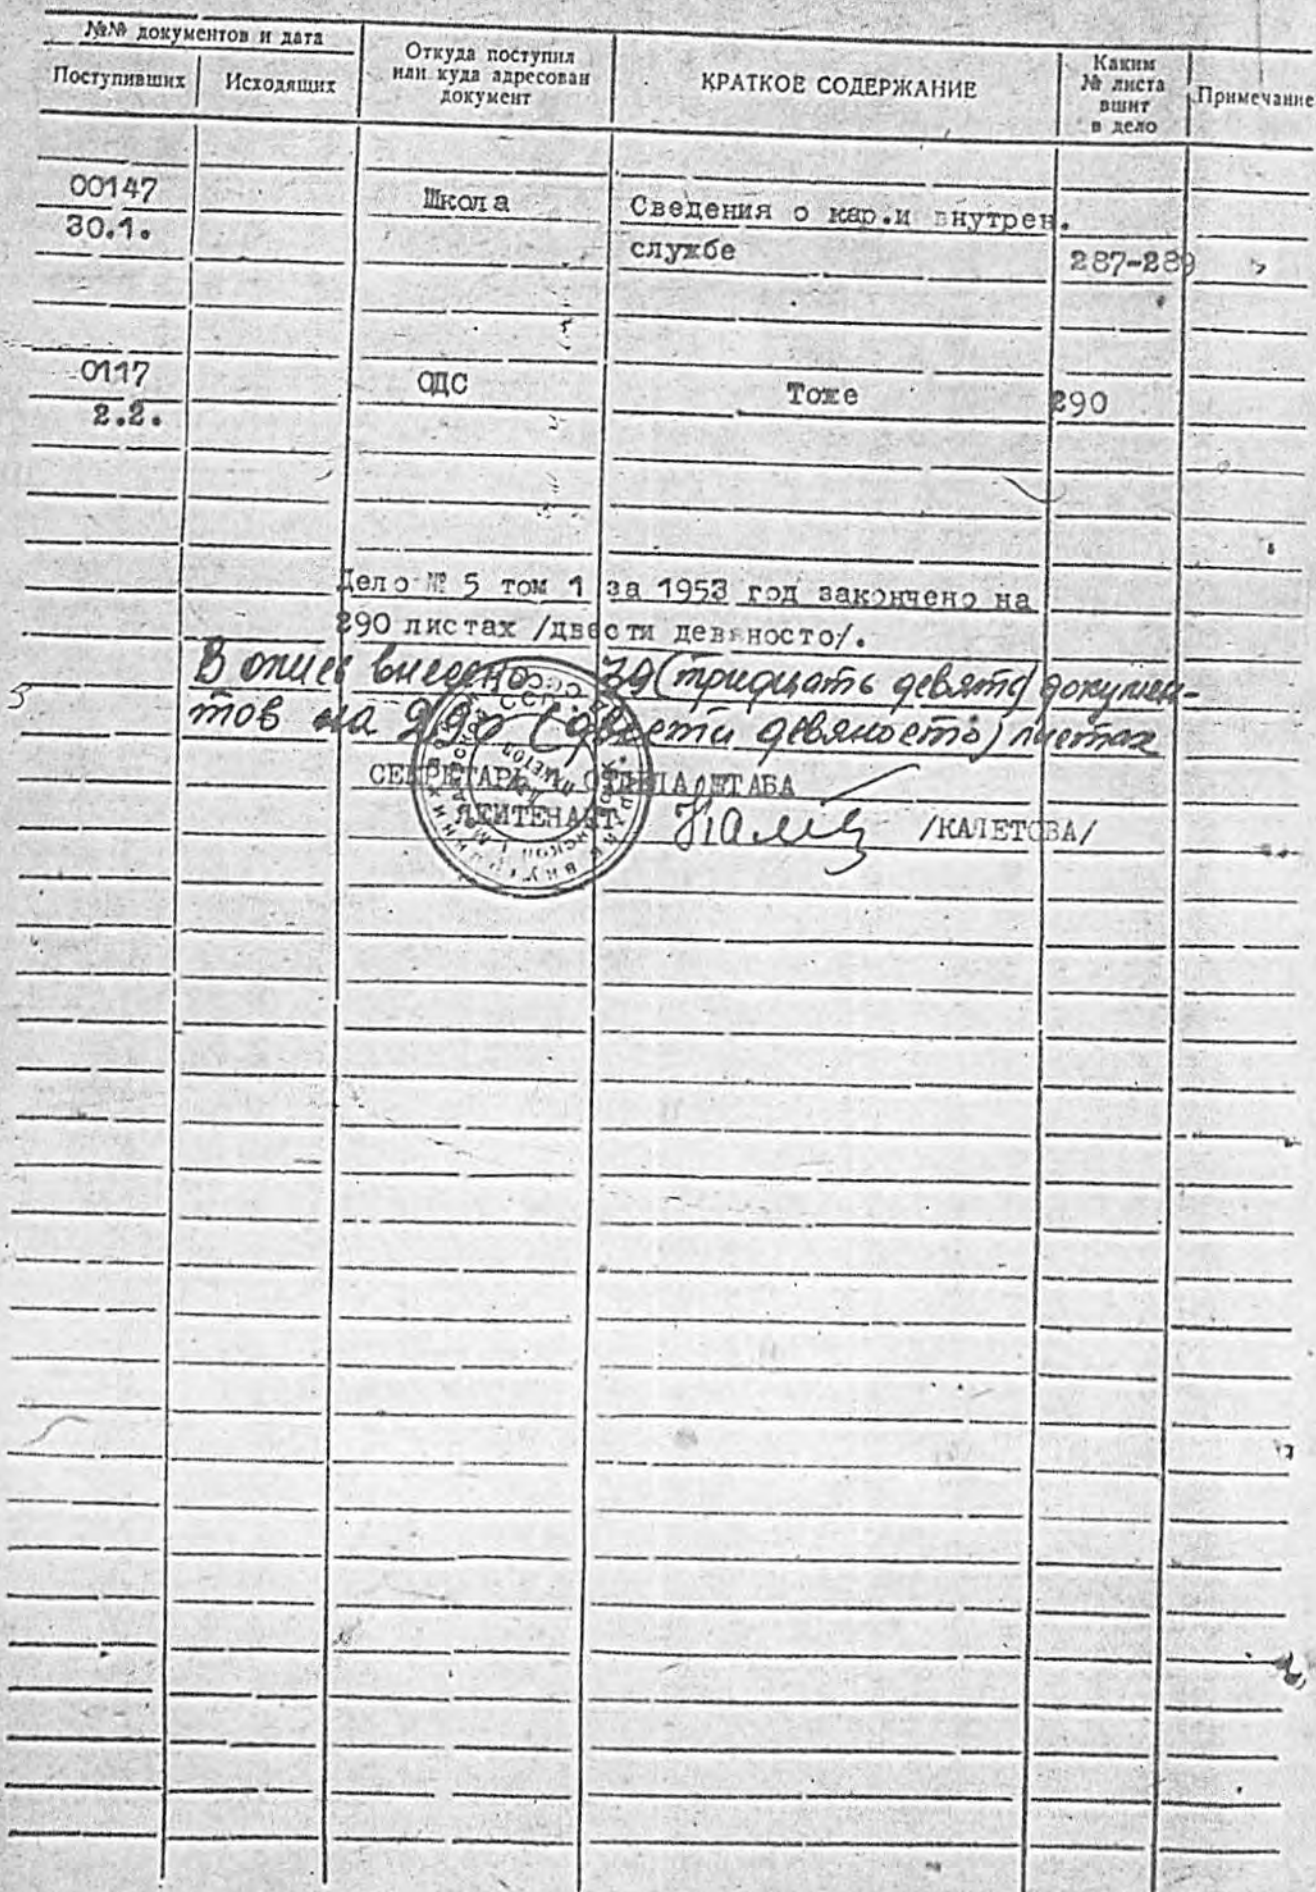 №№ документов и дата
Поступивших
Исходящих
Откуда поступил
или куда адресован
документ
КРАТКОЕ СОДЕРЖАНИЕ
Каким
№ листа
вшит
в дело
Примечание
00147 Школа Сведения о кар.и внутрен.
30.1. службе 287-289
0117 ОДС Тоже 290
2.2.
Дело № 5 том 1 за 1953 год закончено на
290 листах /двести девяносто/.
В опись внесено 39 (тридцать девять) докумен-
тов на 290 (двести девяносто) листах
СЕКРЕТАРЬ ОТДЕЛА ШТАБА
ЛЕЙТЕНАНТ /КАЛЕТОВА/